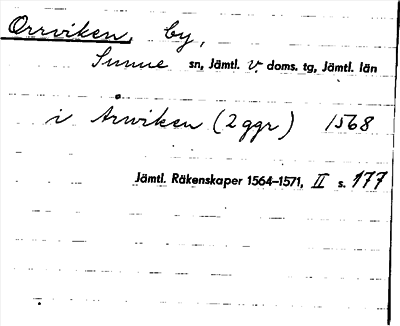 Orrviken, by,
Sunne sn, Jämtl. v. doms. tg, Jämtl. län
i Årwiken (2 ggr) 1568
Jämtl. Räkenskaper 1564–1571, II s. 177